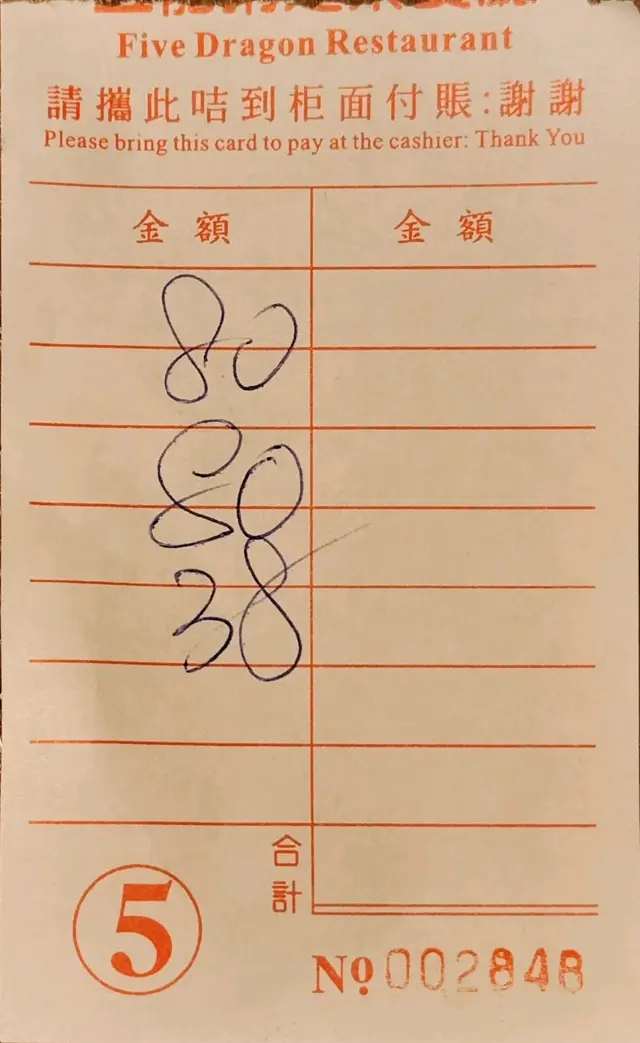 Five Dragon Restaurant
請攜此咭到柜面付賬:謝謝
Please bring this card to pay at the cashier: Thank You
金額 金額
80
80
38
合計
5
No 002848